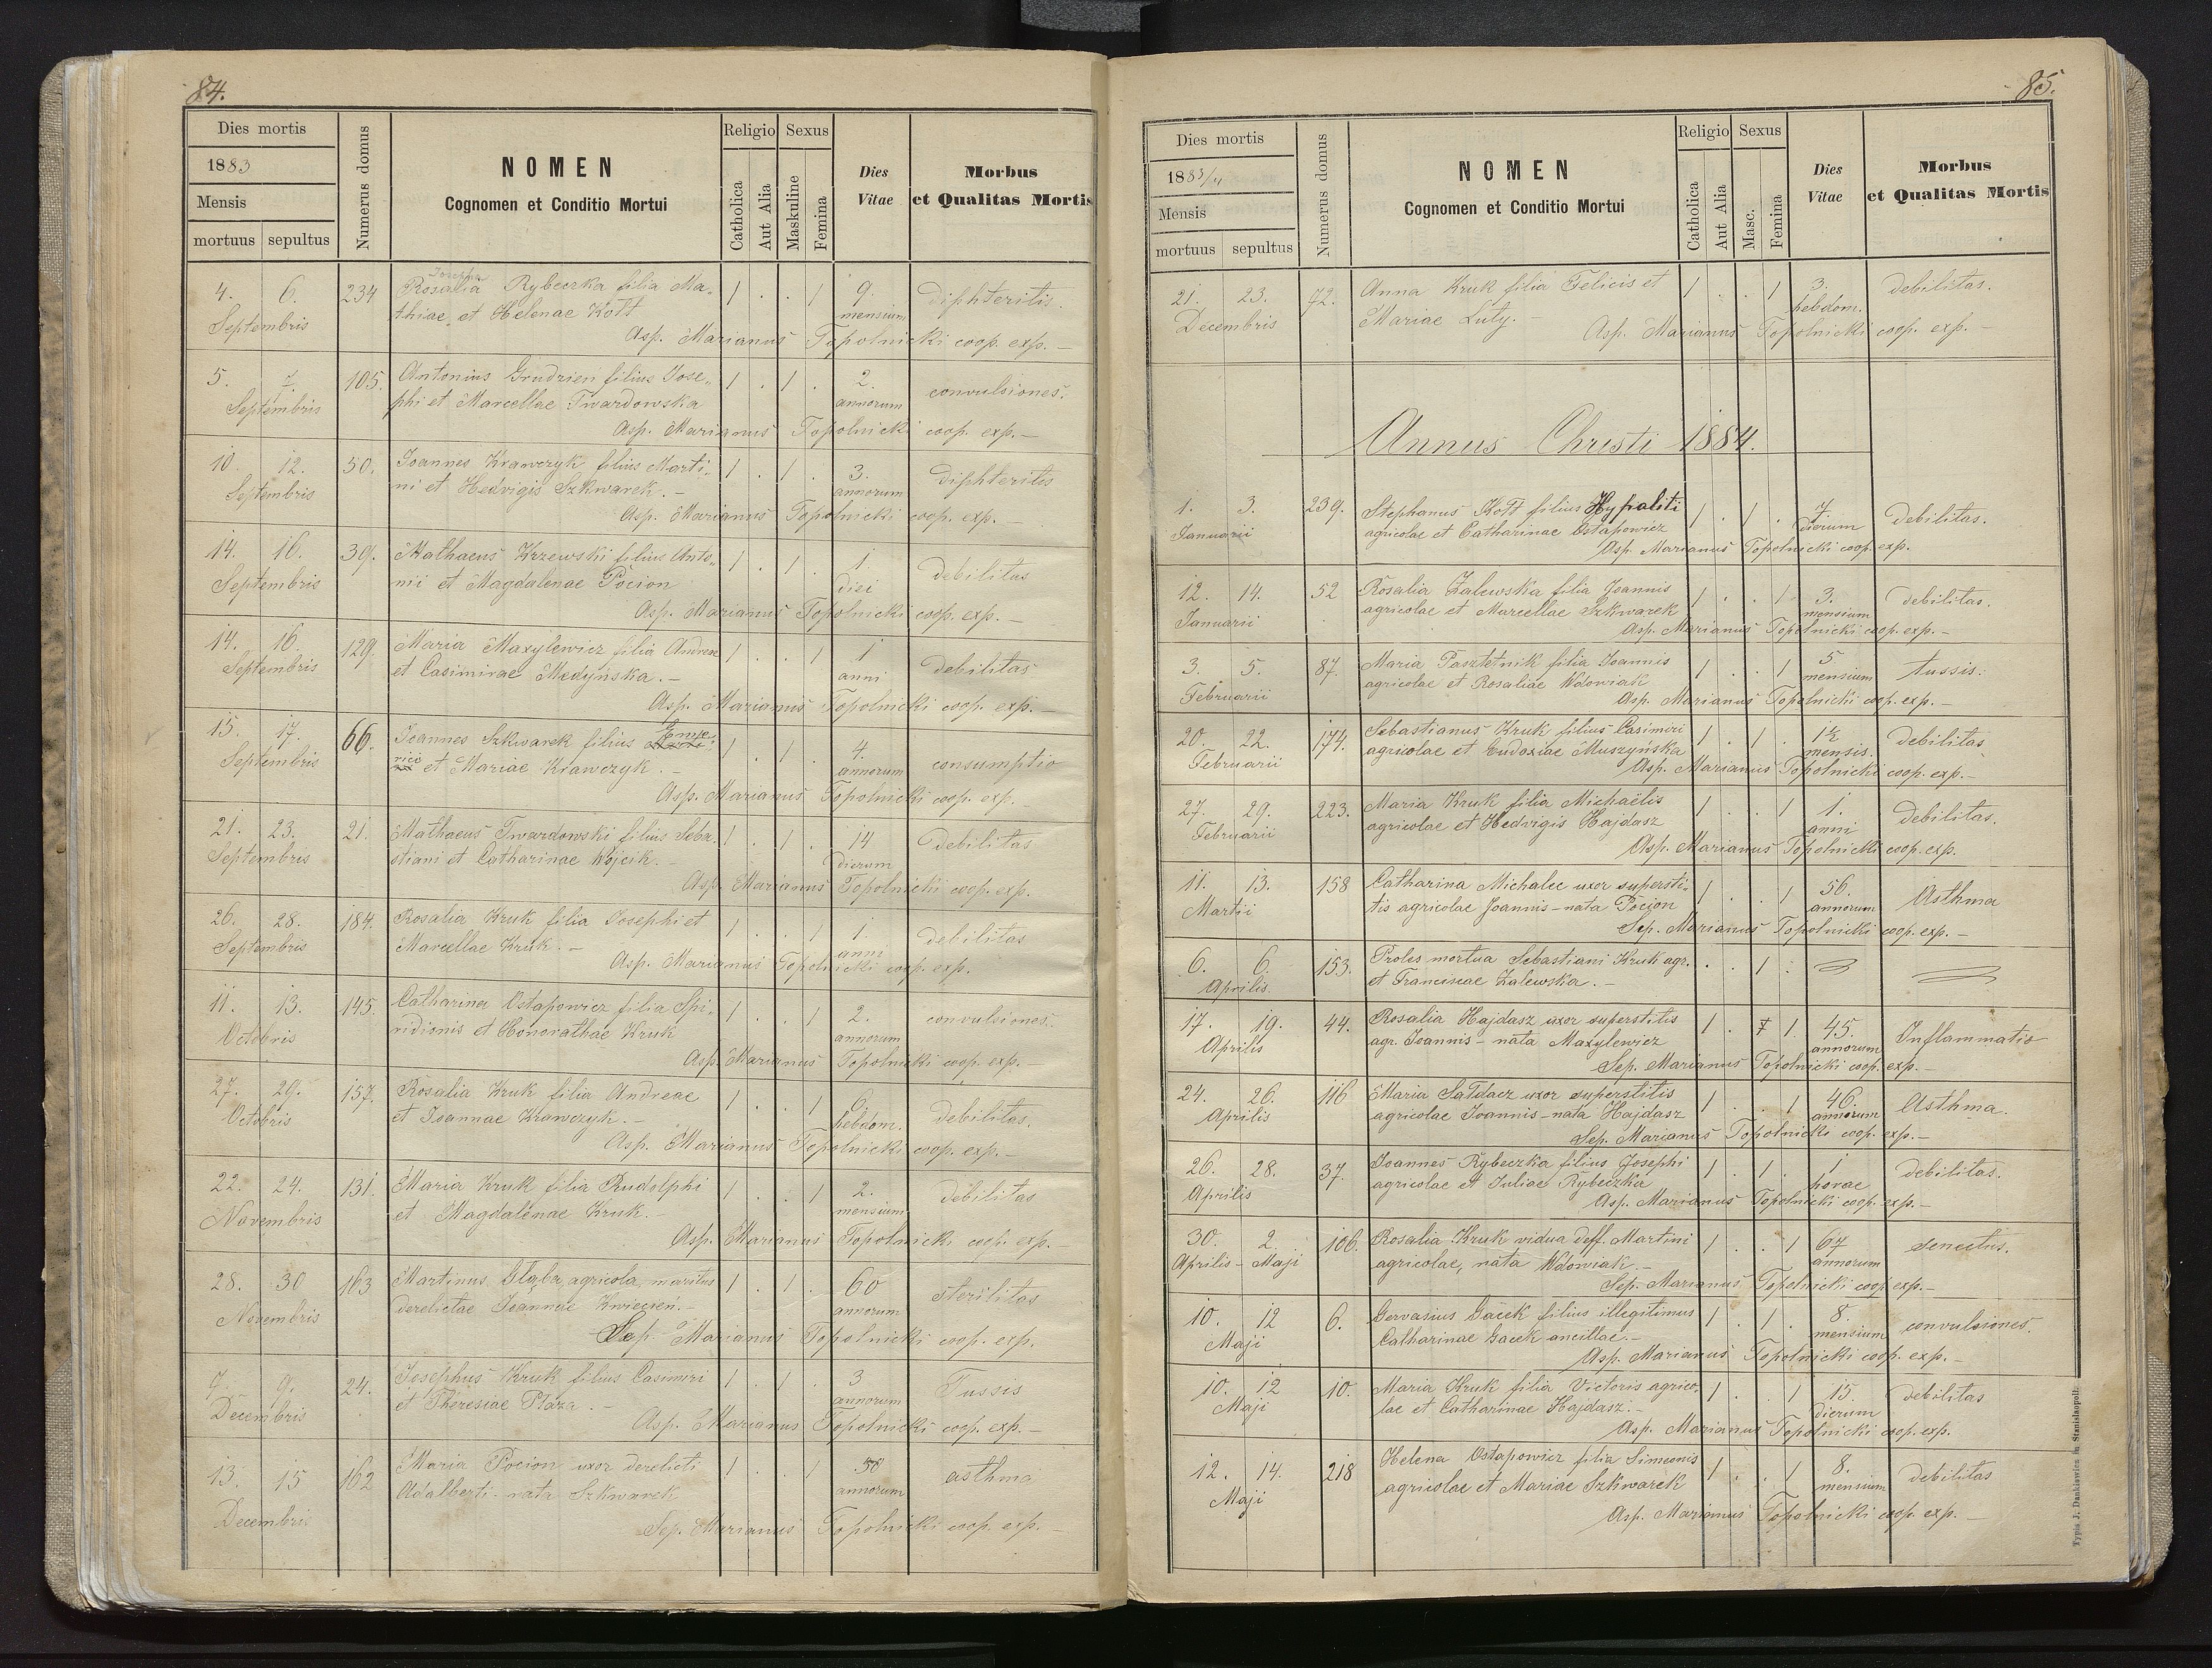 84.
Dies mortis
1883
Mensis
mortuus sepultus
Numerus domus
NOMEN
Cognomen et Conditio Mortui
Religio
Catholica
Aut Alia
Sexus
Maskuline
Femina
Dies
Vitae
Morbus
et Qualitas Mortis
4. 6. 234 Rosalia Rybeczka filia Ma- 1 . . 1 9. diphteritis.
Septembris thiae et Helenae Kott mensium
Asp. Marianus Topolnicki coop. exp. –
5. 7. 105. Antonius Grudzien filius Jose- 1 . 1 . 2. convulsiones.
Septembris phi et Marcellae Twardowska annorum
Asp. Marianus Topolnicki coop. exp. –
10. 12. 50. Joannes Krawczyk filius Marti- 1 . 1 . 3. diphteritis
Septembris ni et Hedvigis Szkwarek. – annorum
Asp. Marianus Topolnicki coop. exp. –
14. 16. 39. Mathaeus Krzewski filius Anto- 1 . 1 . 1. debilitas
Septembris nii et Magdalenae Pocion diei
Asp. Marianus Topolnicki coop. exp. –
14. 16. 129. Maria Maxylewicz filia Andreae 1 . . 1 1 debilitas
Septembris et Casimirae Medyńska. – anni
Asp. Marianus Topolnicki coop. exp. –
15. 17. 66. Joannes Szkwarek filius Eme- 1 . 1 . 4. consumptio
Septembris rici et Mariae Krawczyk. – annorum
Asp. Marianus Topolnicki coop. exp. –
21. 23. 21. Mathaeus Twardowski filius Seba- 1 . 1 . 14 debilitas
Septembris stiani et Catharinae Wójcik. – dierum
Asp. Marianus Topolnicki coop. exp.
26. 28. 184. Rosalia Kruk filia Josephi et 1 . . 1 1. debilitas
Septembris Marcellae Kruk. – anni
Asp. Marianus Topolnicki coop. exp.
11. 13. 145. Catharina Ostapowicz filia Spi- 1 . . 1 2. convulsiones.
Octobris ridionis et Honorathae Kruk annorum
Asp. Marianus Topolnicki coop. exp. –
27. 29. 157. Rosalia Kruk filia Andreae 1 . . 1 6. debilitas.
Octobris et Joannae Krawczyk. – hebdom.
Asp. Marianus Topolnicki coop. exp. –
22. 24. 131. Maria Kruk filia Rudolphi 1 . . 1 2. debilitas
Novembris et Magdalenae Kruk. – mensium
Asp. Marianus Topolnicki coop. exp. –
28. 30 163 Martinus Głąba, agricola, maritus 1 . 1 . 60 sterilitas
Novembris derelictae Joannae Kwiecień. – annorum
Sep. Marianus Topolnicki coop. exp.
7. 9. 24. Josephus Kruk filius Casimiri 1 . 1 . 3 Tussis
Decembris et Theresiae Płaza. – annorum
Asp. Marianus Topolnicki coop. exp. –
13. 15 162 Maria Pocion uxor derelicti 1 . . 1 50 asthma
Decembris Adalberti - nata Szkwarek annorum
Sep. Marianus Topolnicki coop. exp. –
85.
Dies mortis
1883/4
Mensis
mortuus sepultus
Numerus domus
NOMEN
Cognomen et Conditio Mortui
Religio
Catholica
Aut Alia
Sexus
Masc.
Femina
Dies
Vitae
Morbus
et Qualitas Mortis
21. 23. 72. Anna Kruk filia Felicis et 1 . . 1 3. debilitas.
Decembris Mariae Luty. – hebdom.
Asp. Marianus Topolnicki coop. exp. –
Annus Christi 1884.
1. 3. 239. Stephanus Kott filius Hypoliti 1 . 1 . 7. debilitas.
Januarii agricolae et Catharinae Ostapowicz dierum
Asp. Marianus Topolnicki coop. exp.
12. 14. 52 Rosalia Zalewska filia Joannis 1 . . 1 3. debilitas.
Januarii agricolae et Marcellae Szkwarek mensium
Asp. Marianus Topolnicki coop. exp. –
3. 5. 87. Maria Pasztetnik filia Joannis 1 . . 1 5 tussis.
Februarii agricolae et Rosaliae Wdowiak mensium
Asp. Marianus Topolnicki coop. exp. –
20. 22. 174. Sebastianus Kruk filius Casimiri 1 . 1 . 1½ debilitas
Februarii agricolae et Eudoxiae Muszyńska mensis.
Asp. Marianus Topolnicki coop. exp. –
27. 29. 223. Maria Kruk filia Michaëlis 1 . . 1 1. debilitas.
Februarii agricolae et Hedvigis Hajdasz anni
Asp. Marianus Topolnicki coop. exp.
11. 13. 158 Catharina Michalec uxor supersti- 1 . . 1 56. Asthma
Martii tis agricolae Joannis – nata Pocion annorum
Sep. Marianus Topolnicki coop. exp. –
6. 6. 153. Proles mortua Sebastiani Kruk agr. . . 1 .
Aprilis. et Franciscae Zalewska. –
17. 19. 44. Rosalia Hajdasz uxor superstitis 1 . 1 45. Inflammatio
Aprilis agr. Joannis – nata Maxylewicz annorum
Sep. Marianus Topolnicki coop. exp. –
24. 26. 116 Maria Sałdacz uxor superstitis 1 . . 1 46. Asthma.
Aprilis agricolae Joannis – nata Hajdasz annorum
Sep. Marianus Topolnicki coop. exp. –
26. 28. 37. Joannes Rybeczka filius Josephi 1 . 1 . 1 debilitas.
Aprilis agricolae et Juliae Rybeczka horae
Asp. Marianus Topolnicki coop. exp. –
30. 2. 106. Rosalia Kruk vidua deff. Martini 1 . . 1 67 senectus.
Aprilis - Maji agricolae, nata Wdowiak. – annorum
Sep. Marianus Topolnicki coop. exp. –
10. 12 6. Gervasius Gacek filius illegitimus 1 . 1 . 8. convulsiones.
Maji Catharinae Gacek ancillae. – mensium
Asp. Marianus Topolnicki coop. exp. –
10. 12 10. Maria Kruk filia Victoris agrico- 1 . . 1 15. debilitas
Maji lae et Catharinae Hajdasz. – dierum
Asp. Marianus Topolnicki coop. exp.
12. 14. 218 Helena Ostapowicz filia Simeonis 1 . . 1 8. debilitas
Maji agricolae et Mariae Szkwarek mensium
Asp. Marianus Topolnicki coop. exp. –
Typis J. Dankiewicz in Stanislaopoli.